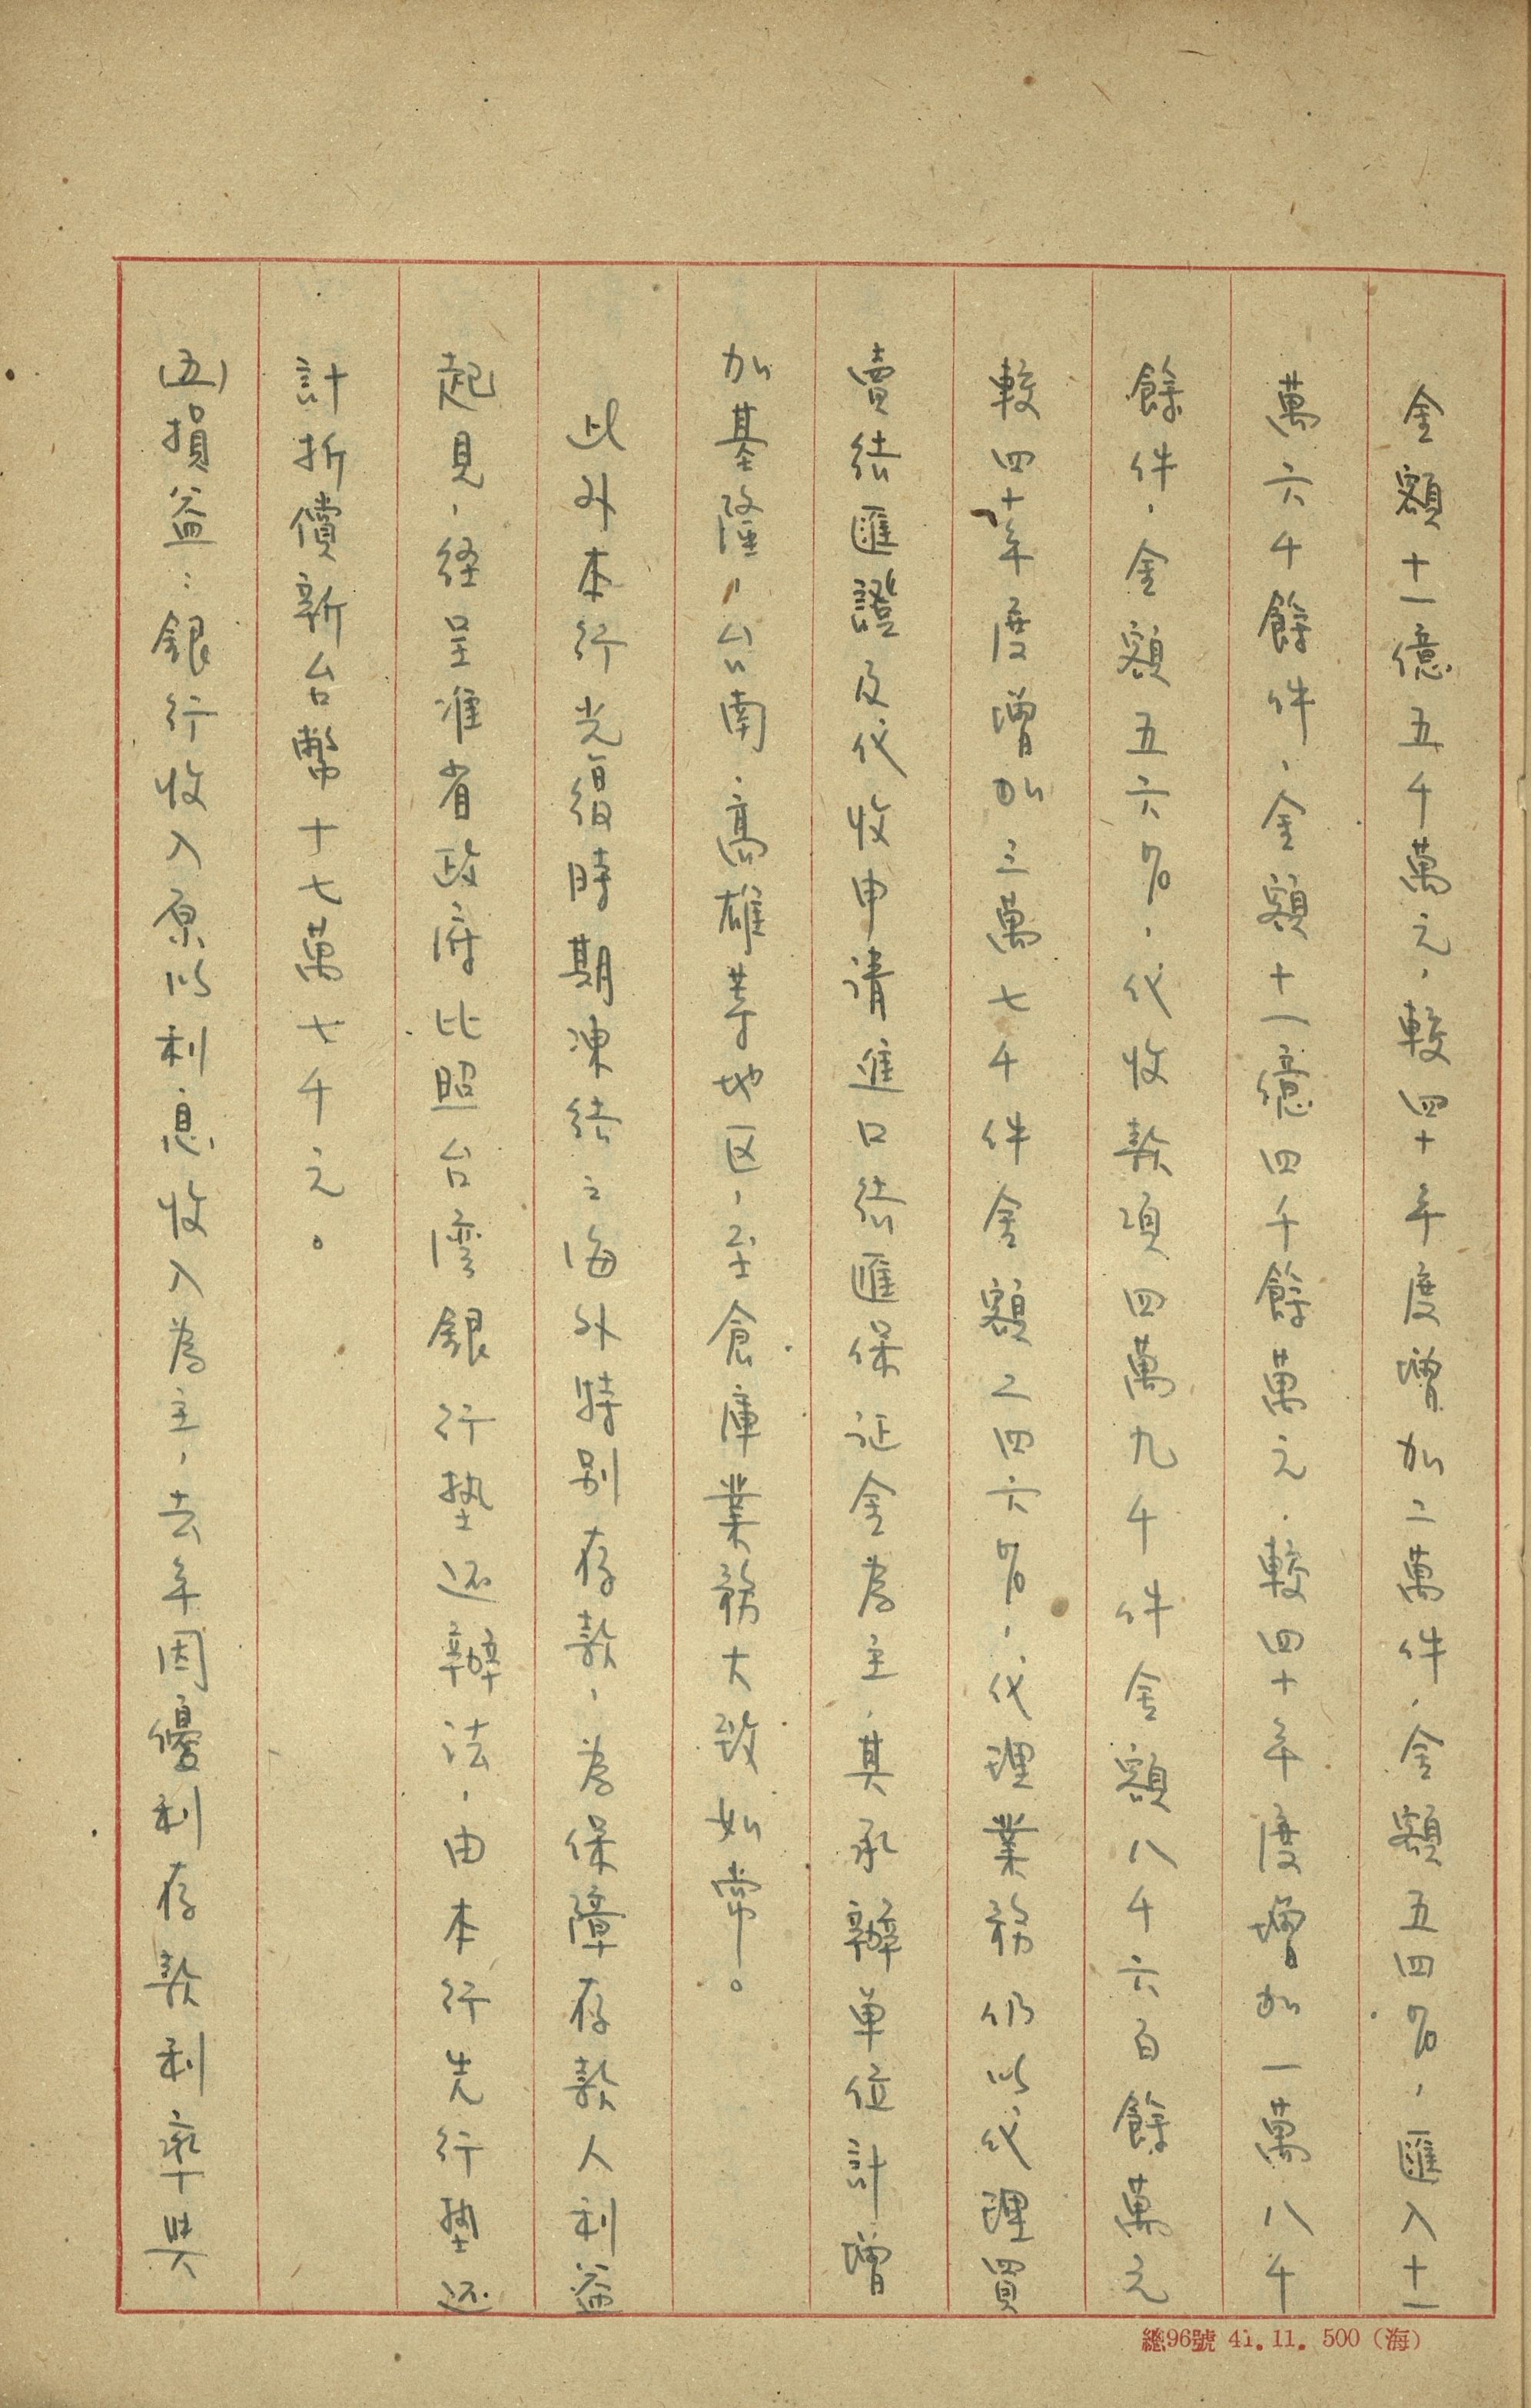 金額十一億五千萬元，較四十年度增加二萬件，金額五四％，匯入十一
萬六千餘件，金額十一億四千餘萬元，較四十年度增加一萬八千
餘件，金額五六％，代收款項四萬九千件金額八千六百餘萬元
較四十年度增加三萬七千件金額二四六％，代理業務仍以代理買
賣結匯證及代收申請進口結匯保证金為主，其承辦单位計增
加基隆，台南，高雄等地区，至倉庫業務大致如常。
此外本行光復時期凍結之海外特别存款，為保障存款人利益
起見，経呈准省政府比照台湾銀行墊还辦法，由本行先行墊还
計折償新台幣十七萬七千元。
(五)損益：銀行收入原以利息收入為主，去年因優利存款利率與
總96號 41.11. 500（海）